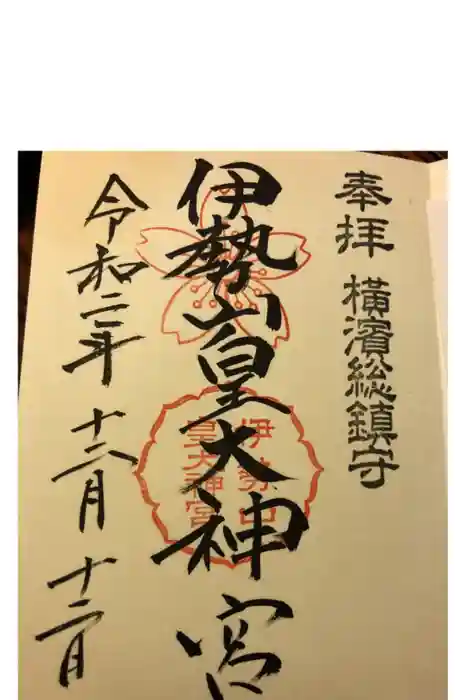 奉拝 横濱総鎮守
伊勢山皇大神宮
伊勢山
皇大神宮
令和二年 十二月 十二日